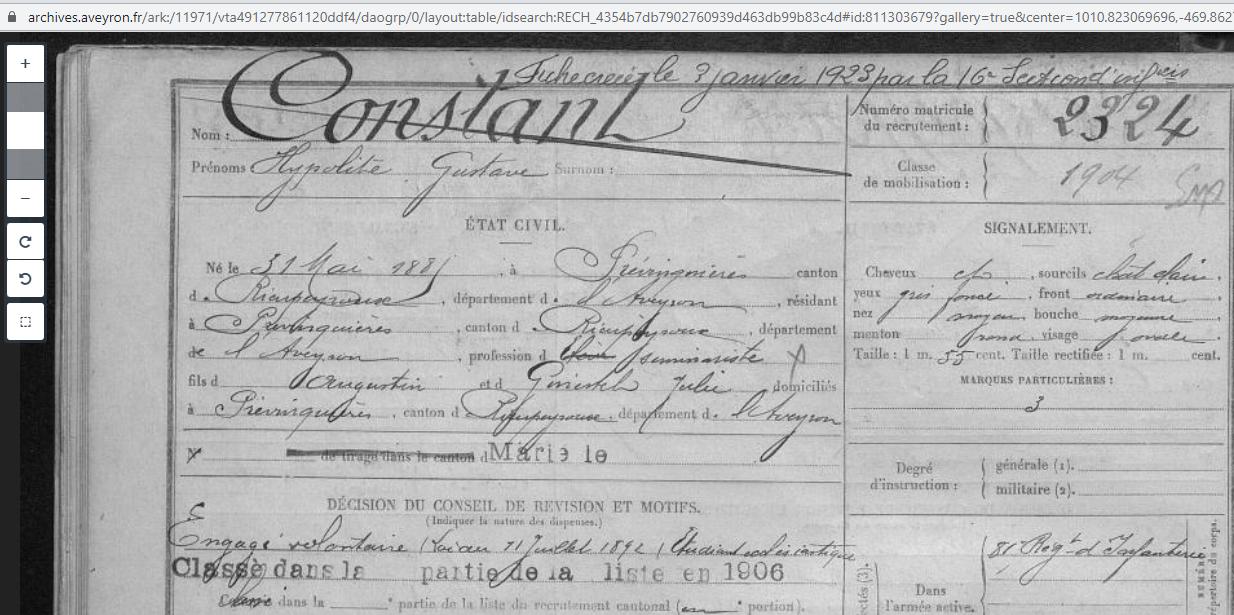 archives.aveyron.fr/ark:/11971/vta491277861120ddf4/daogrp/0/layout:table/idsearch:RECH_4354b7db7902760939d463db99b83c4d#id:811303679?gallery=true&center=1010.823069696,-469.862
Fiche créée le 3 janvier 1923 par la 16e Section d'inf
Nom : Constant
Prénoms Hypolite Gustave Surnom :
Numéro matricule du recrutement : 2324
Classe de mobilisation : 1904
ÉTAT CIVIL.
Né le 31 Mai 188 , à Prévinquières canton
d. Rieupeyroux , département d. l'Aveyron , résidant
à Prévinquières , canton d Rieupeyroux , département
de l'Aveyron , profession d séminariste
fils d Augustin et d Julie domiciliés
à Prévinquières , canton d Rieupeyroux , département d. l'Aveyron
N de tirage dans le canton d Marié le
SIGNALEMENT.
Cheveux ch , sourcils chât clair .
yeux gris foncé , front ordinaire .
nez moyen , bouche moyenne .
menton rond , visage ovale .
Taille : 1 m. 55 cent. Taille rectifiée : 1 m. cent.
MARQUES PARTICULIÈRES :
3
Degré d'instruction : générale (1).
militaire (2).
DÉCISION DU CONSEIL DE REVISION ET MOTIFS.
(Indiquer la nature des dispenses.)
Engagé volontaire (Loi du 11 Juillet 1892) Etudiant ecclésiastique
Classé dans la partie de la liste en 1906
dans la e partie de la liste du recrutement cantonal ( e portion).
Dans l'armée active.
81e Régt d'Infanterie